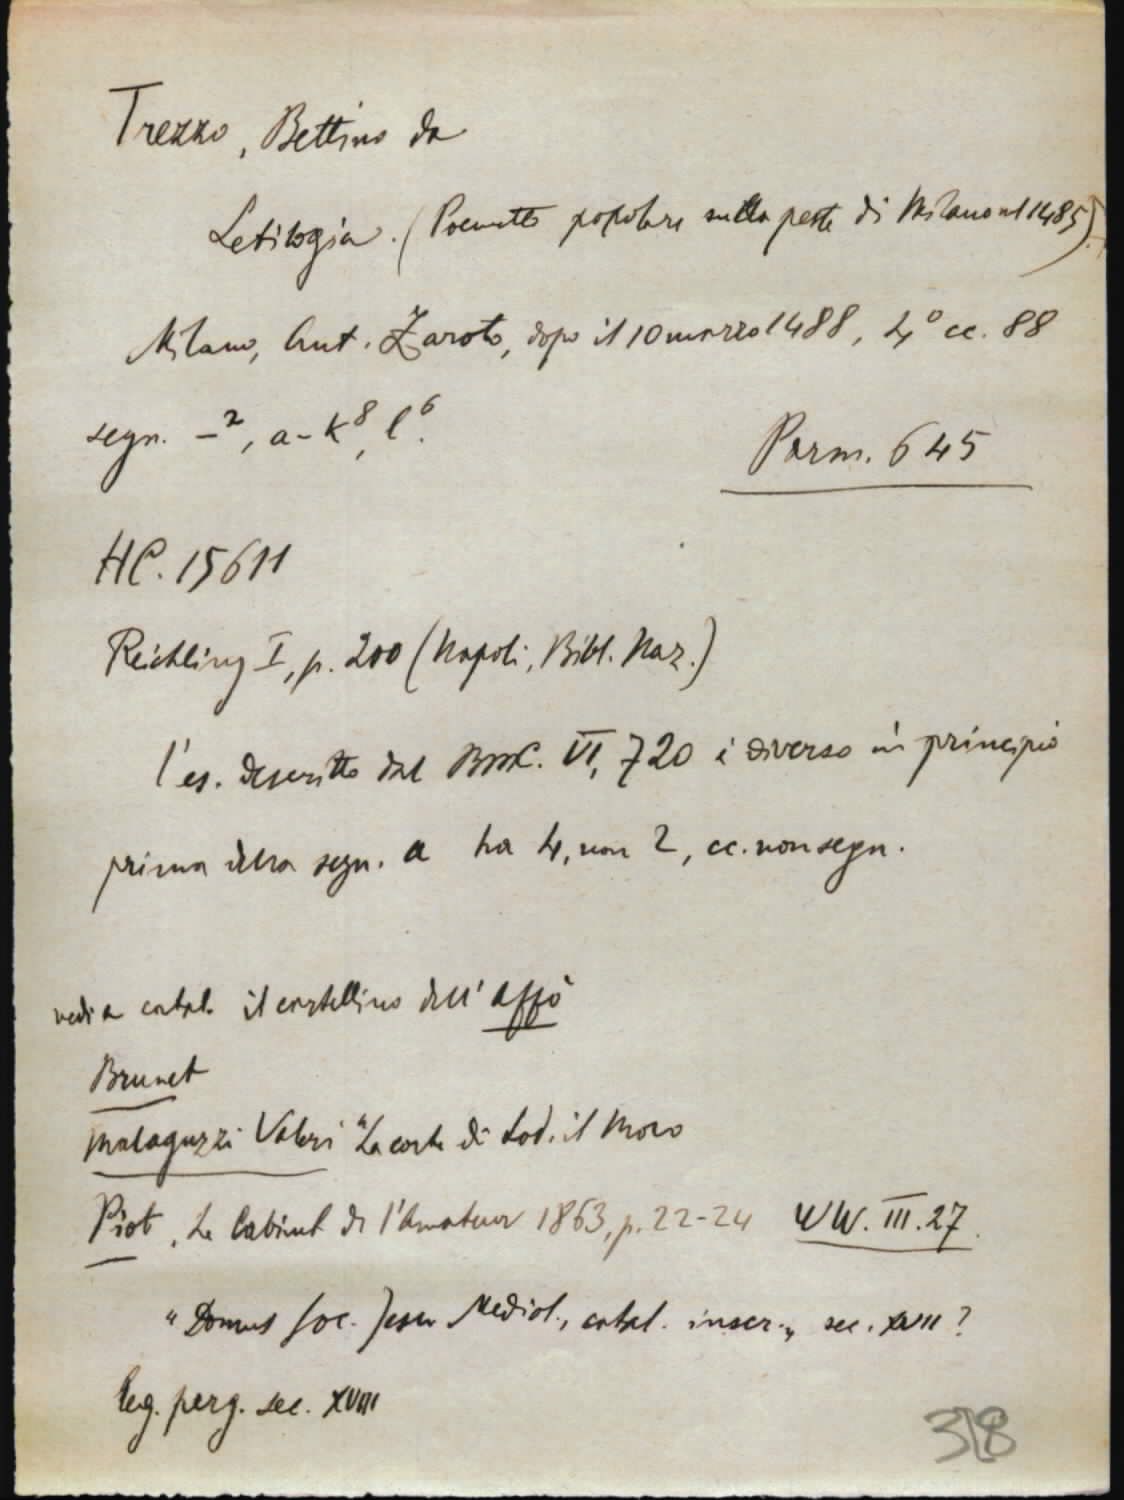 Trezzo, Bettino da
Letilogia. (Poemetto popolare sulla peste di Milano nel 1485).
Milano, Ant. Zaroto, dopo il 10 marzo 1488, 4° cc. 88
segn. -², a-k⁸, l⁶.
Parm. 645
HC. 15611
Reichling I, p. 200 (Napoli, Bibl. Naz.)
l'es. descritto dal BMC. VI, 720 è diverso in principio
prima della segn. a ha 4, non 2, cc. non segn.
vedi a catal. il cartellino dell'Affò
Brunet
Malaguzzi Valeri "La corte di Lod. il Moro
Piot, Le Cabinet de l'Amateur 1863, p. 22-24 WW. III. 27.
"Domus Soc. Jesu Mediol., catal. inscr.", sec. XVII?
Leg. perg. sec. XVIII
318